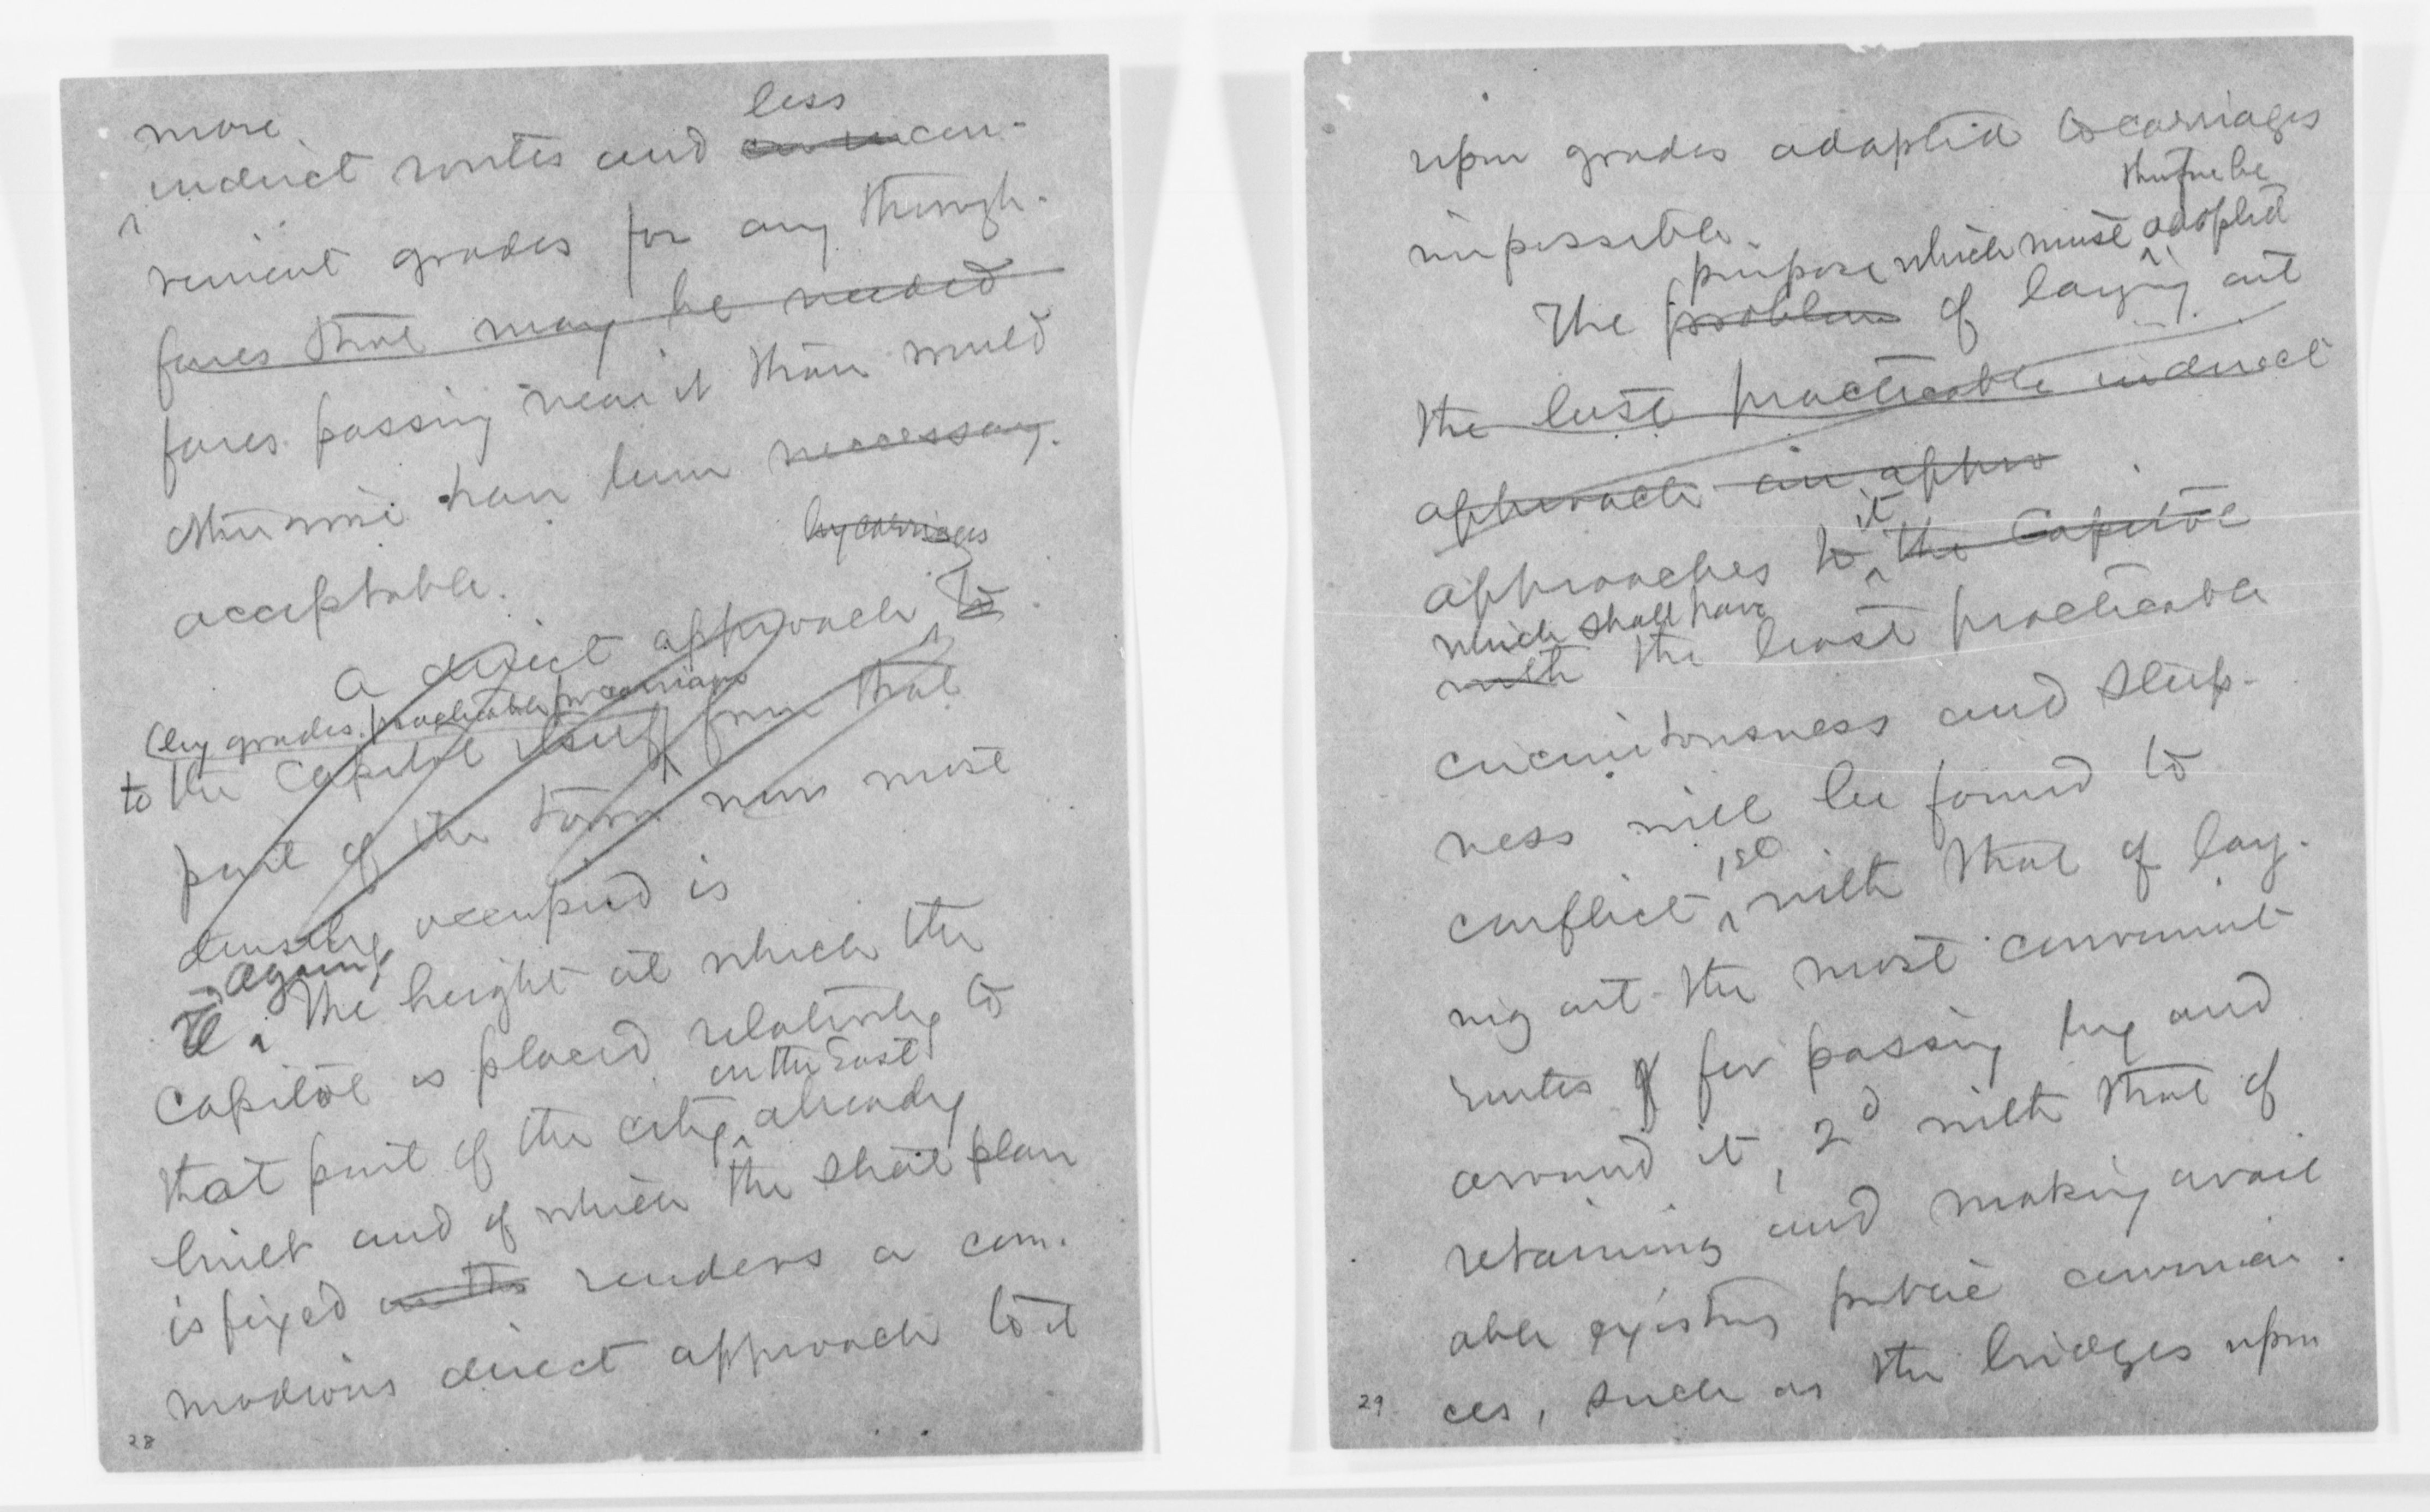 less
more
indirect routes and con-
venient grades for any through-
fares that may be needed
fares passing near it than would
otherwise have been necessary.
acceptable.
by carriages
A direct approach to
(by grades practicable for carriages
to the Capitol itself from that
part of the town now most
densely occupied is
again,
The height at which the
Capitol is placed relatively to
on the East
that part of the city already
built and of which the street plan
is fixed on the renders a com-
modious direct approach to it
28
upon grades adapted to carriages
impossible.
therefore be
purpose which must adopted
The problem of laying out
the least practicable indirect
approach an appro
it
approaches to the Capitol
which shall have
with the least practicable
circuitousness and steep-
ness will be found to
1st
conflict, with that of lay-
ing out the most convenient
routes for passing by and
around it, 2d with that of
retaining and making avail
able existing public convenien
ces, such as the bridges upon
29